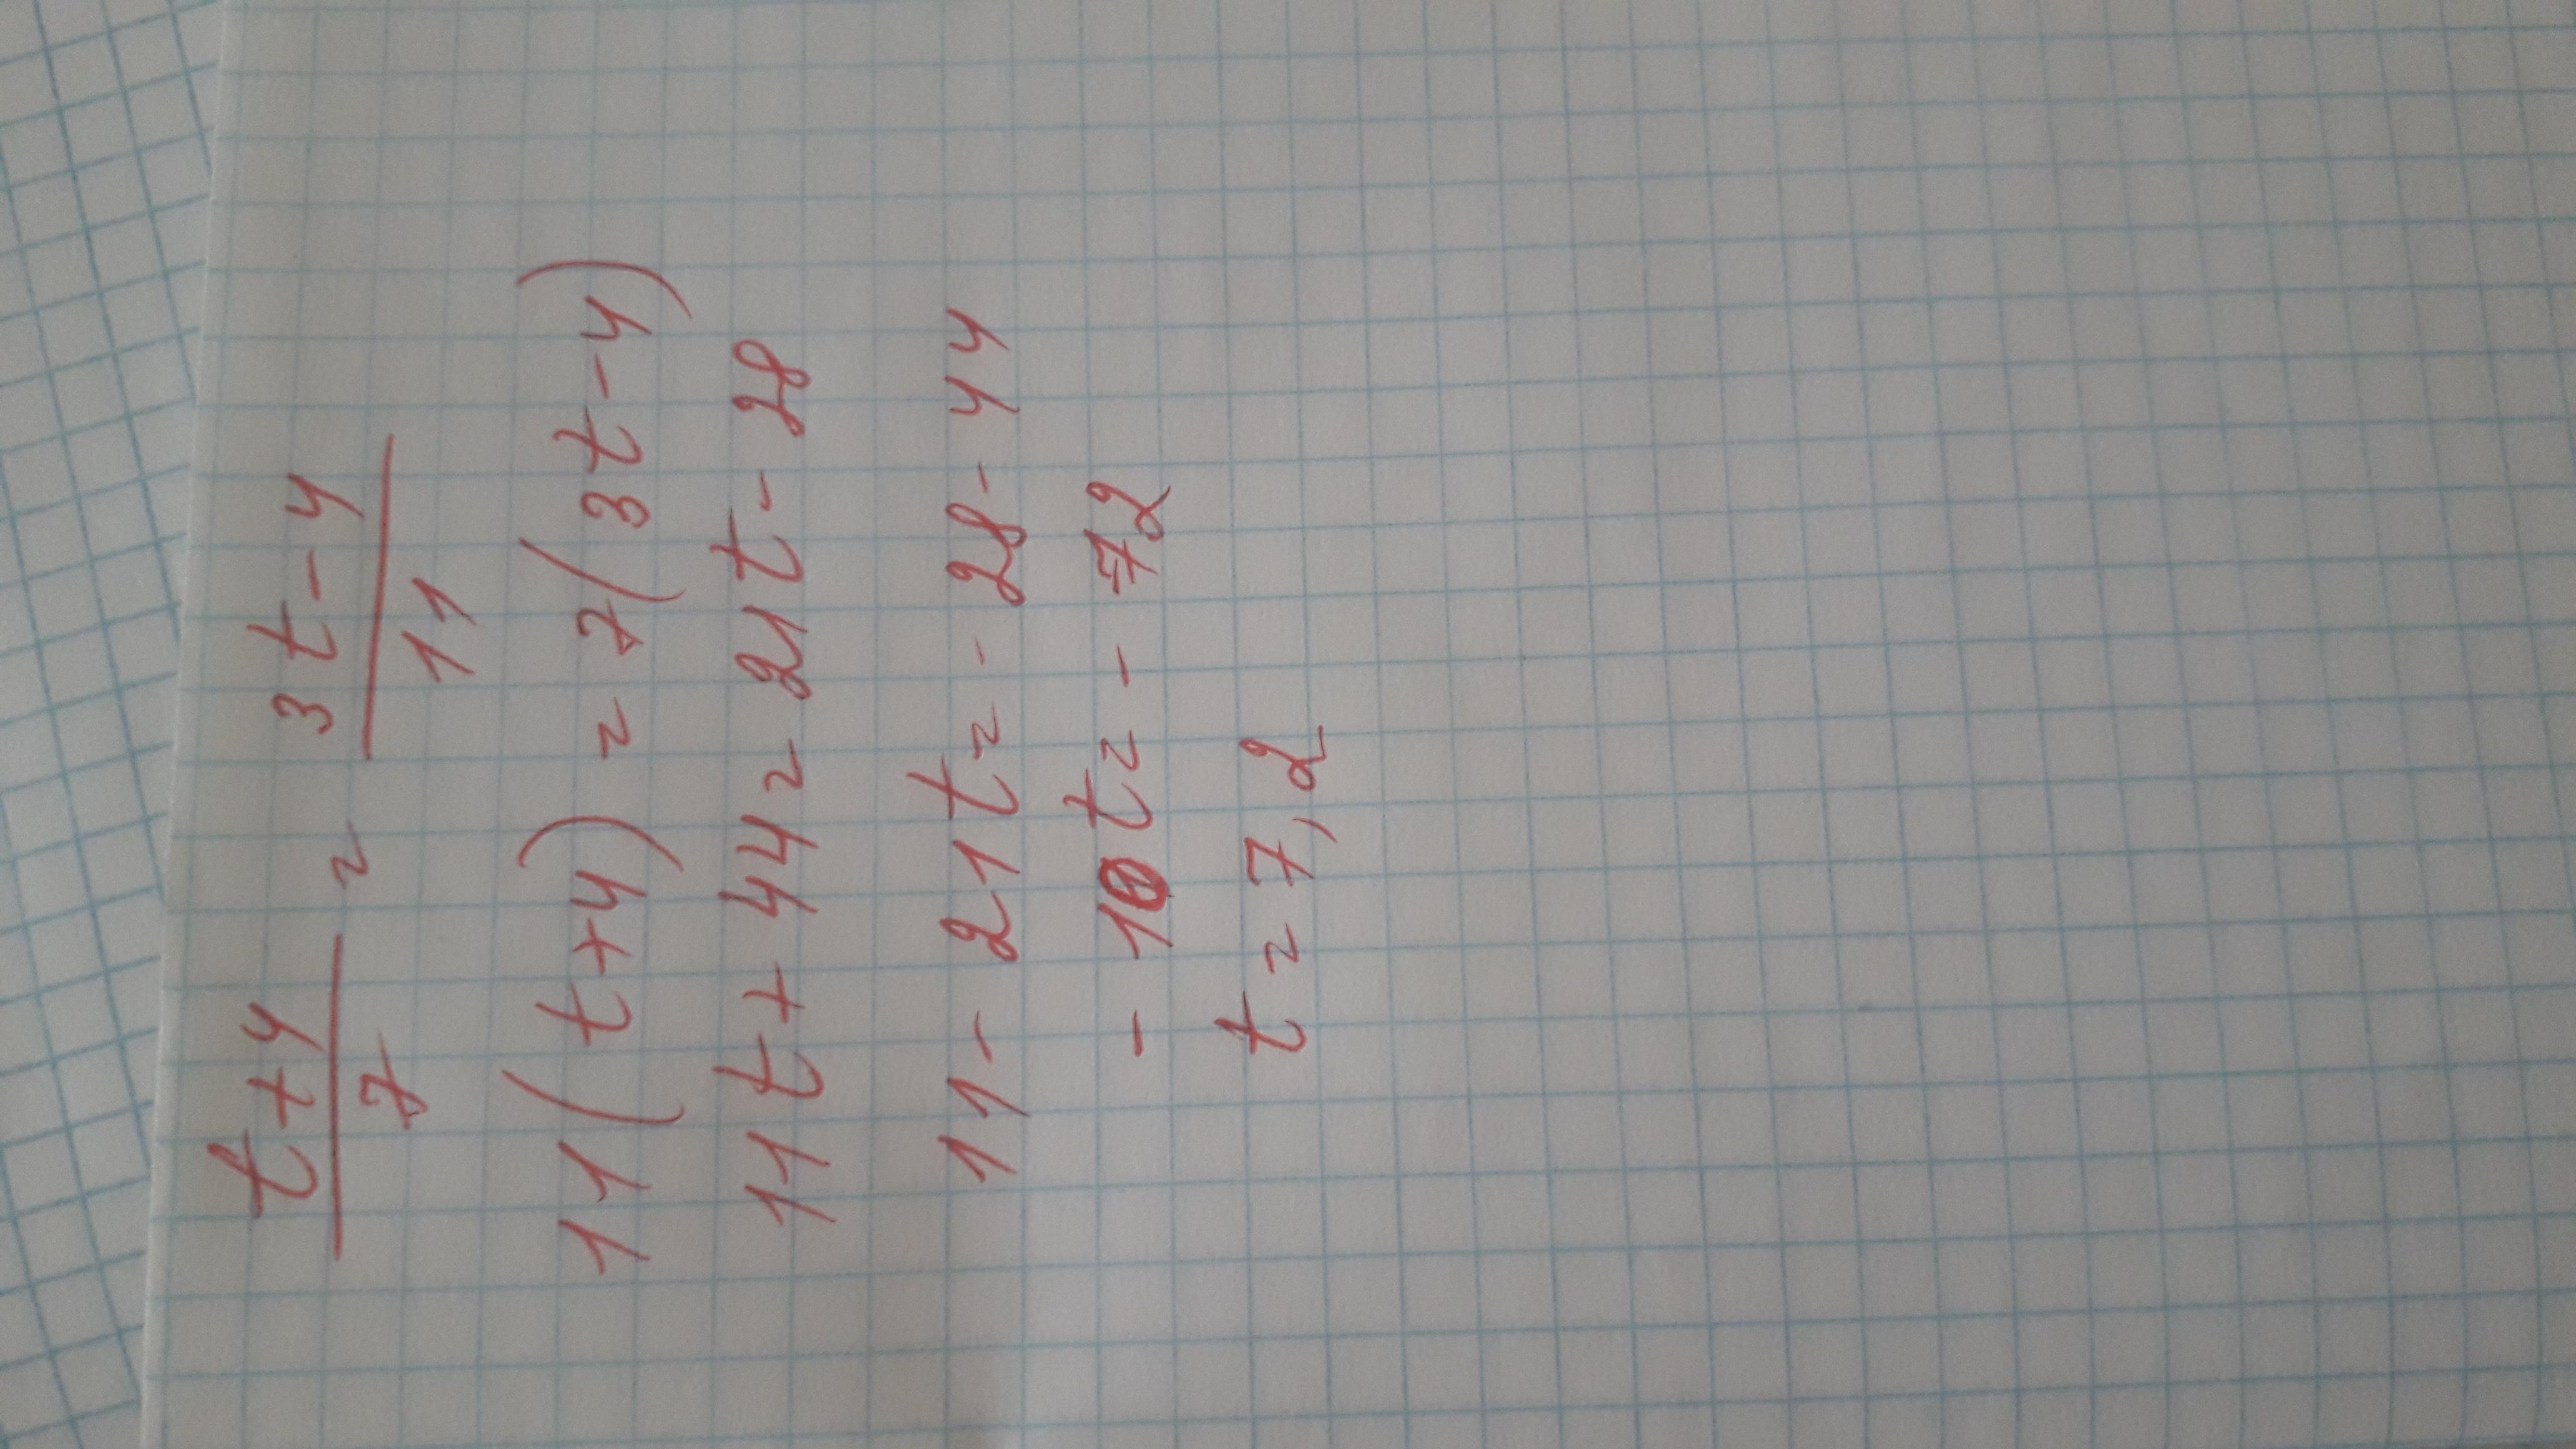 t+4 = 3t-4
7 11
11(t+4) = 7(3t-4)
11t+44=21t-28
11-21t=-28-44
-10t=-72
t=7,2